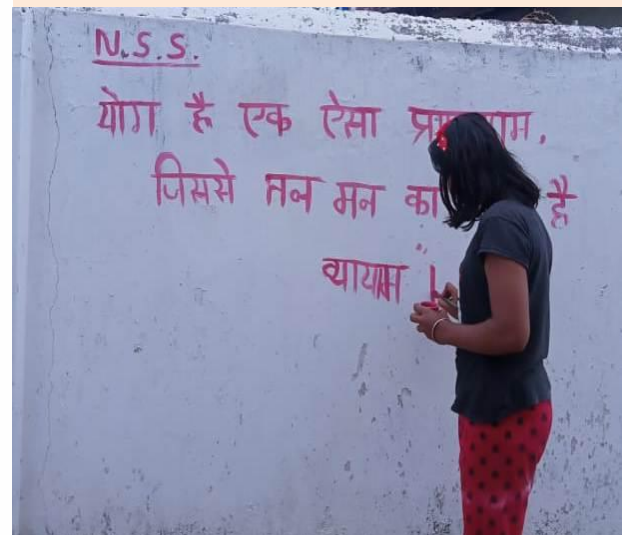 N.S.S.
योग है एक ऐसा
जिससे तन मन का है
व्यायाम ।